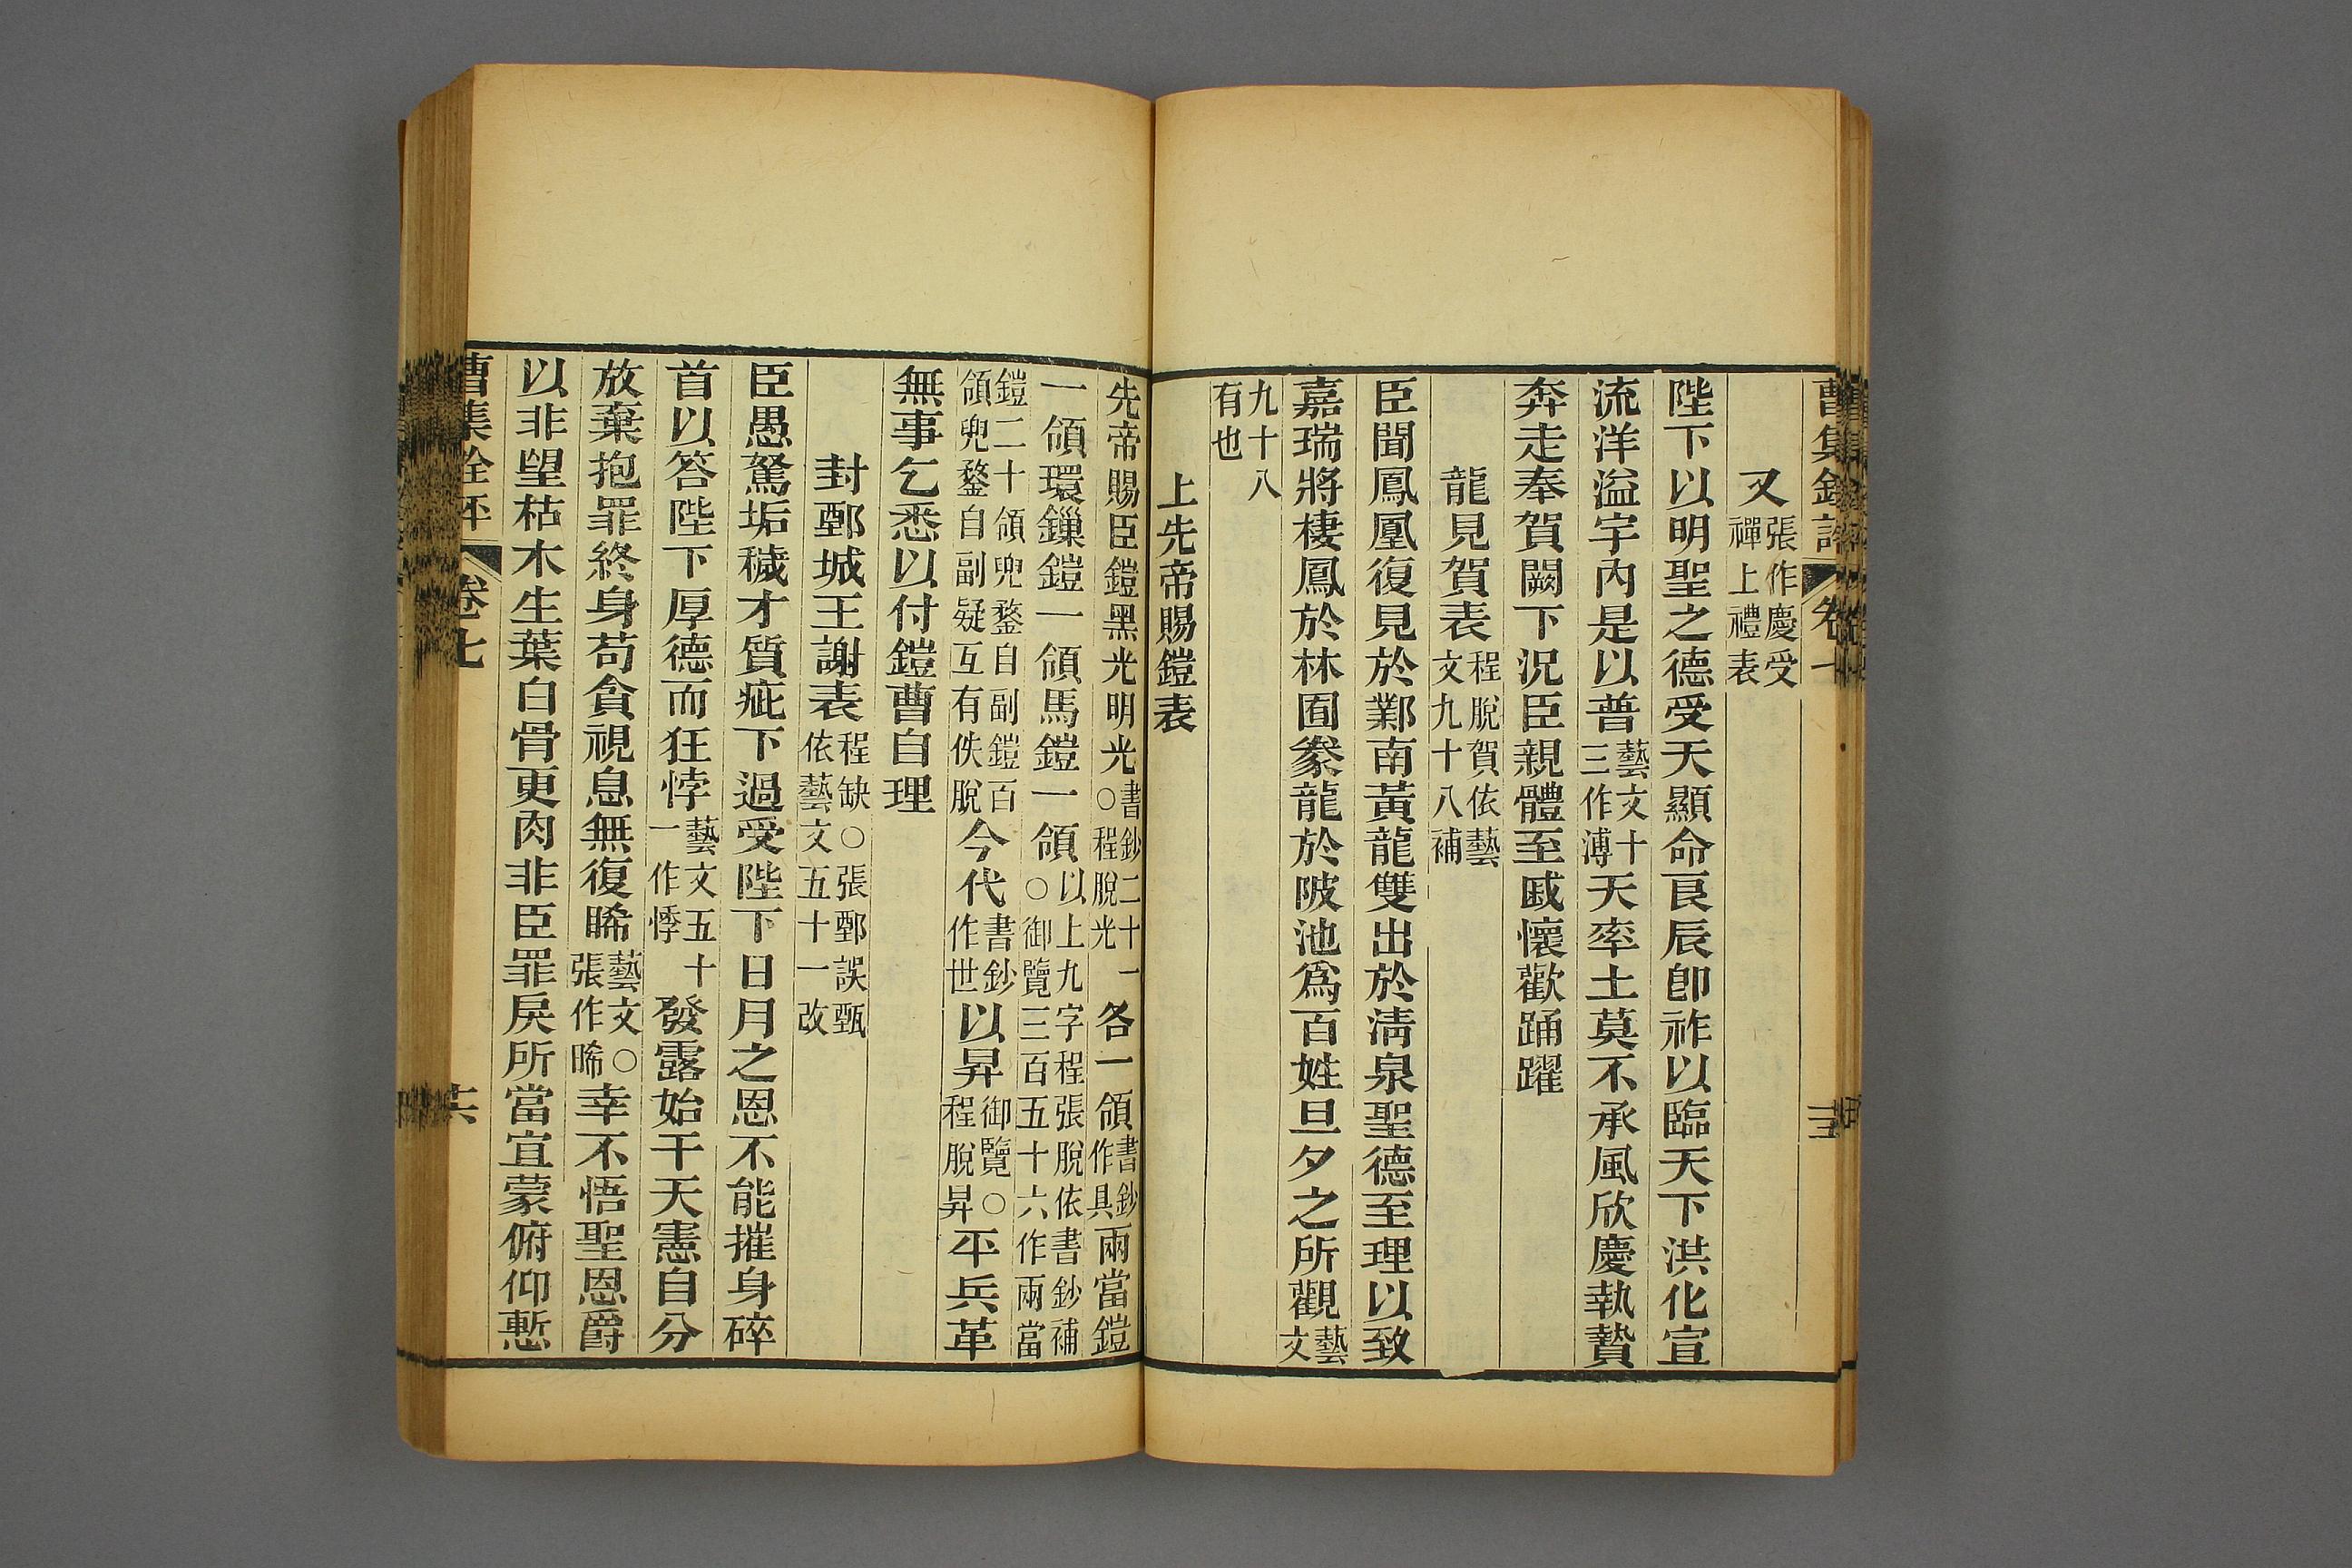 又張作慶受禪上禮表
陛下以明聖之德受天顯命良辰卽祚以臨天下洪化宣
流洋溢宇內是以普藝文十三作溥天率土莫不承風欣慶執贄
奔走奉賀闕下況臣親體至戚懷歡踊躍
龍見賀表程脫賀依藝文九十八補
臣聞鳳凰復見於鄴南黃龍雙出於淸泉聖德至理以致
嘉瑞將棲鳳於林囿豢龍於陂池爲百姓旦夕之所觀藝文
九十八有也
上先帝賜鎧表
先帝賜臣鎧黑光明光書鈔二十一○程脫光各一領書鈔作具兩當鎧
一領環鏁鎧一領馬鎧一領以上九字程張脫依書鈔補○御覽三百五十六作兩當
鎧二十領兜鍪自副鎧百領兜鍪自副疑互有佚脫今代書鈔作世以昇御覽○程脫昇平兵革
無事乞悉以付鎧曹自理
封鄄城王謝表程缺○張鄄誤甄依藝文五十一改
臣愚駑垢穢才質疵下過受陛下日月之恩不能摧身碎
首以答陛下厚德而狂悖藝文五十一作悸發露始干天憲自分
放棄抱罪終身苟貪視息無復睎藝文○張作晞幸不悟聖恩爵
以非望枯木生葉白骨更肉非臣罪戾所當宜蒙俯仰慙
曹集銓評 卷七 六